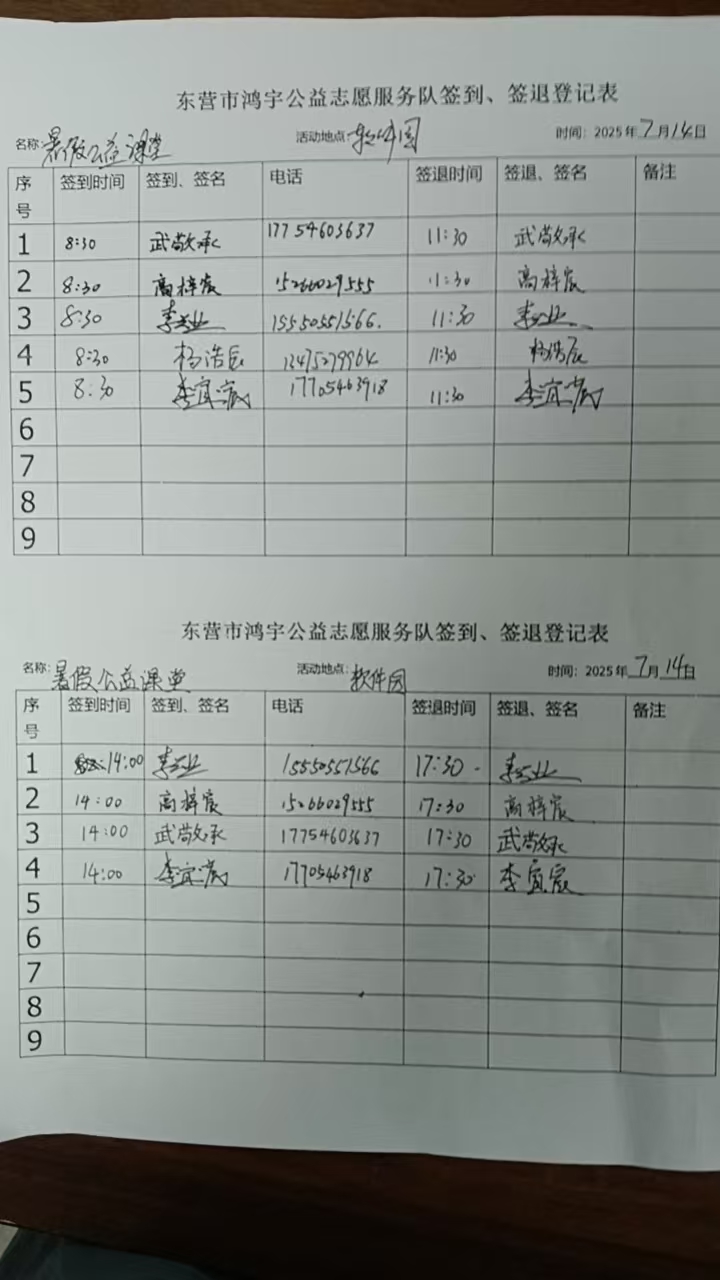 东营市鸿宇公益志愿服务队签到、签退登记表
名称:暑假公益课堂 活动地点:软件园 时间:2025年7月14日
序号 签到时间 签到、签名 电话 签退时间 签退、签名 备注
1 8:30 武敬承 17754603637 11:30 武敬承
2 8:30 高梓宸 15266029555 11:30 高梓宸
3 8:30 李业 15550551566. 11:30 李业
4 8:30 杨浩辰 11:30 杨浩辰
5 8:30 李宜宸 17705463918 11:30 李宜宸
6
7
8
9
东营市鸿宇公益志愿服务队签到、签退登记表
名称:暑假公益课堂 活动地点:软件园 时间:2025年7月14日
序号 签到时间 签到、签名 电话 签退时间 签退、签名 备注
1 14:00 李业 15550551566 17:30 李业
2 14:00 高梓宸 15266029555 17:30 高梓宸
3 14:00 武敬承 17754603637 17:30 武敬承
4 14:00 李宜宸 17705463918 17:30 李宜宸
5
6
7
8
9